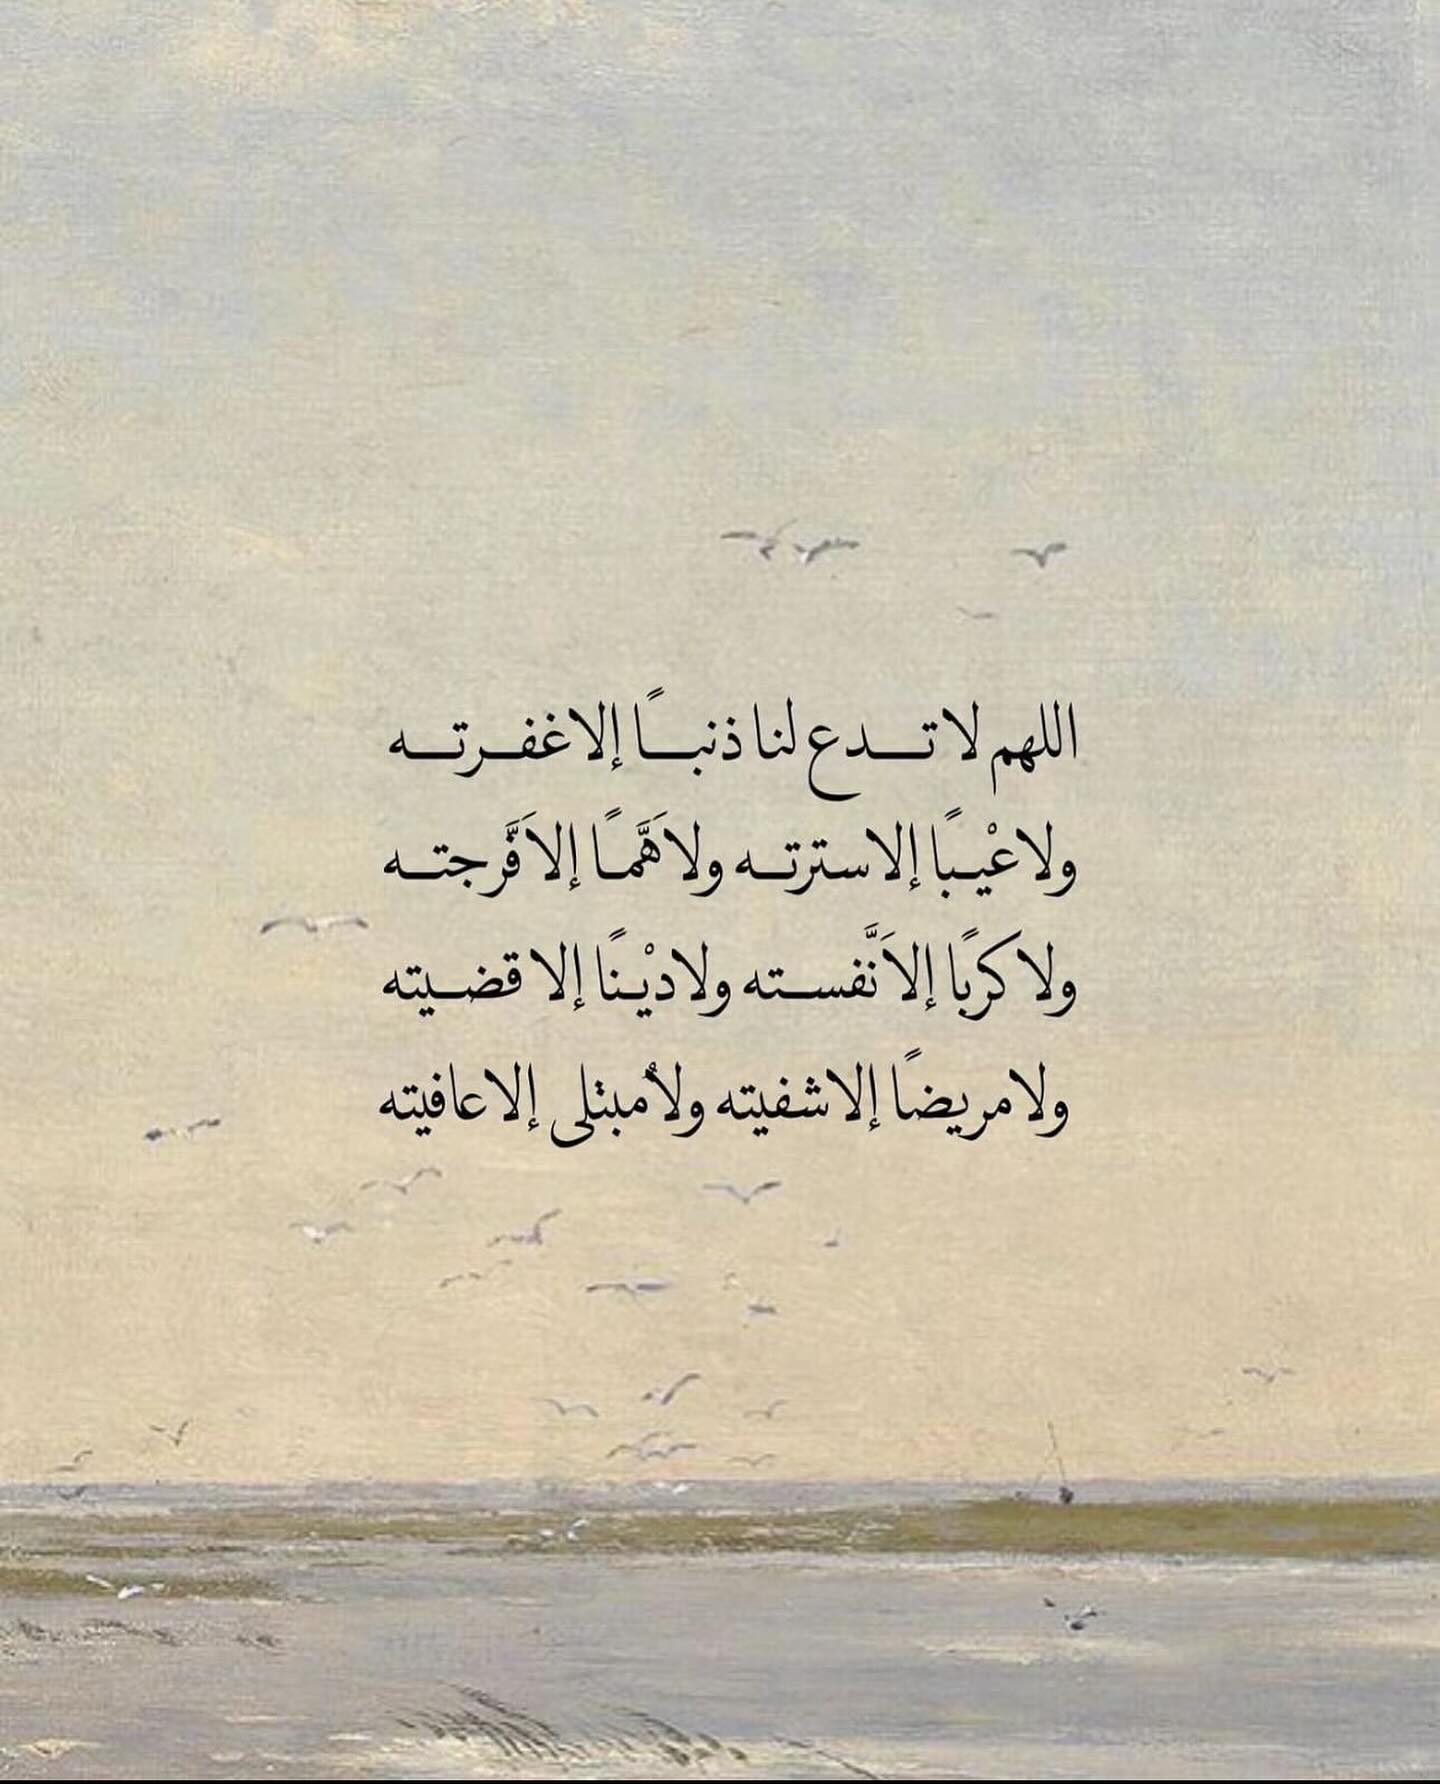 اللهم لا تدع لنا ذنبًا إلا غفرته
ولا عيْبًا إلا سترته ولا هَمَّاً إلا فَرَّجته
ولا كربًا إلا نَفَّسته ولا ديْنًا إلا قضيته
ولا مريضًا إلا شفيته ولا مُبتلى إلا عافيته